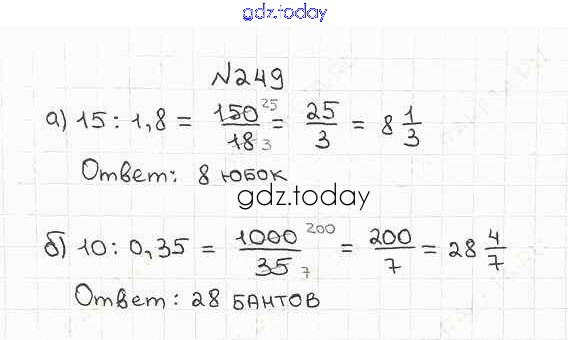 gdz.today
№249
а) 15 : 1,8 = 150/18 25 3 = 25/3 = 8 1/3
Ответ: 8 юбок
gdz.today
б) 10 : 0,35 = 1000/35 200 7 = 200/7 = 28 4/7
Ответ: 28 бантов